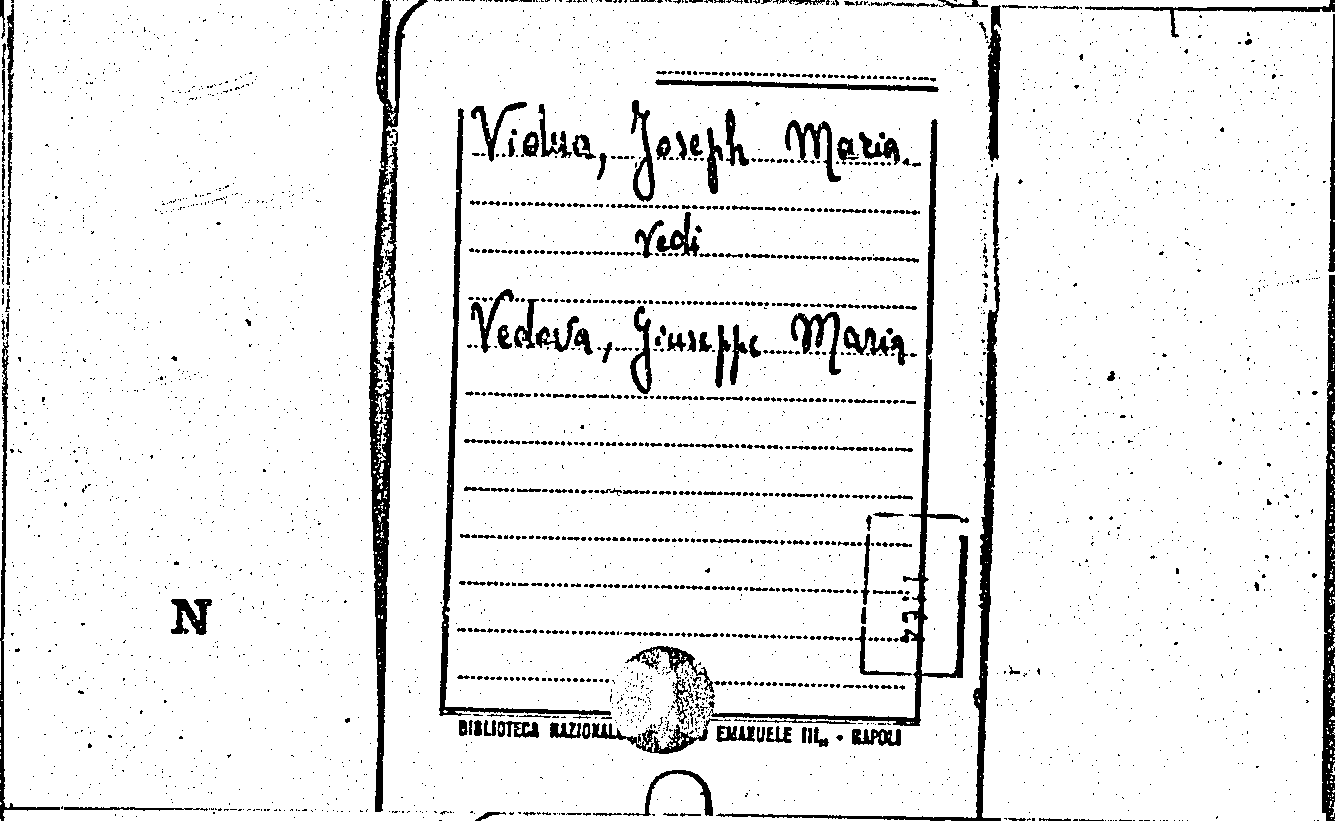 Vidua, Joseph Maria.
vedi
Vedova, Giuseppe Maria
N
BIBLIOTECA NAZIONAL EMANUELE III„ - NAPOLI